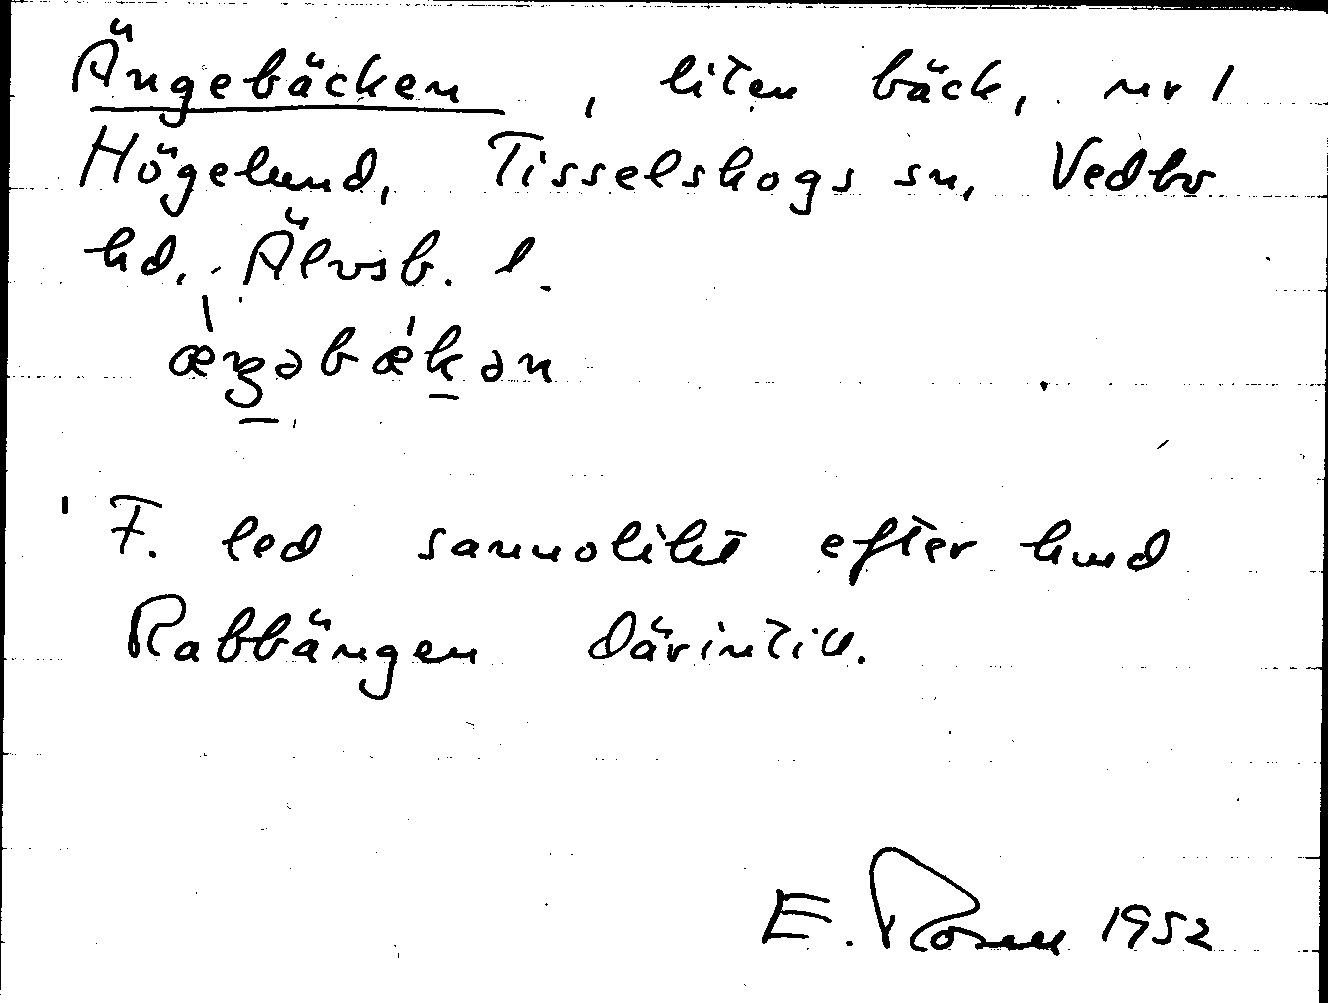 Ängebäcken, liten bäck, nr 1
Högelund, Tisselskogs sn, Vedbo
hd. Älvsb. l.
æŋəbækən
F. led sannolikt efter hmd
Rabbängen därintill.
E. Rosell 1952